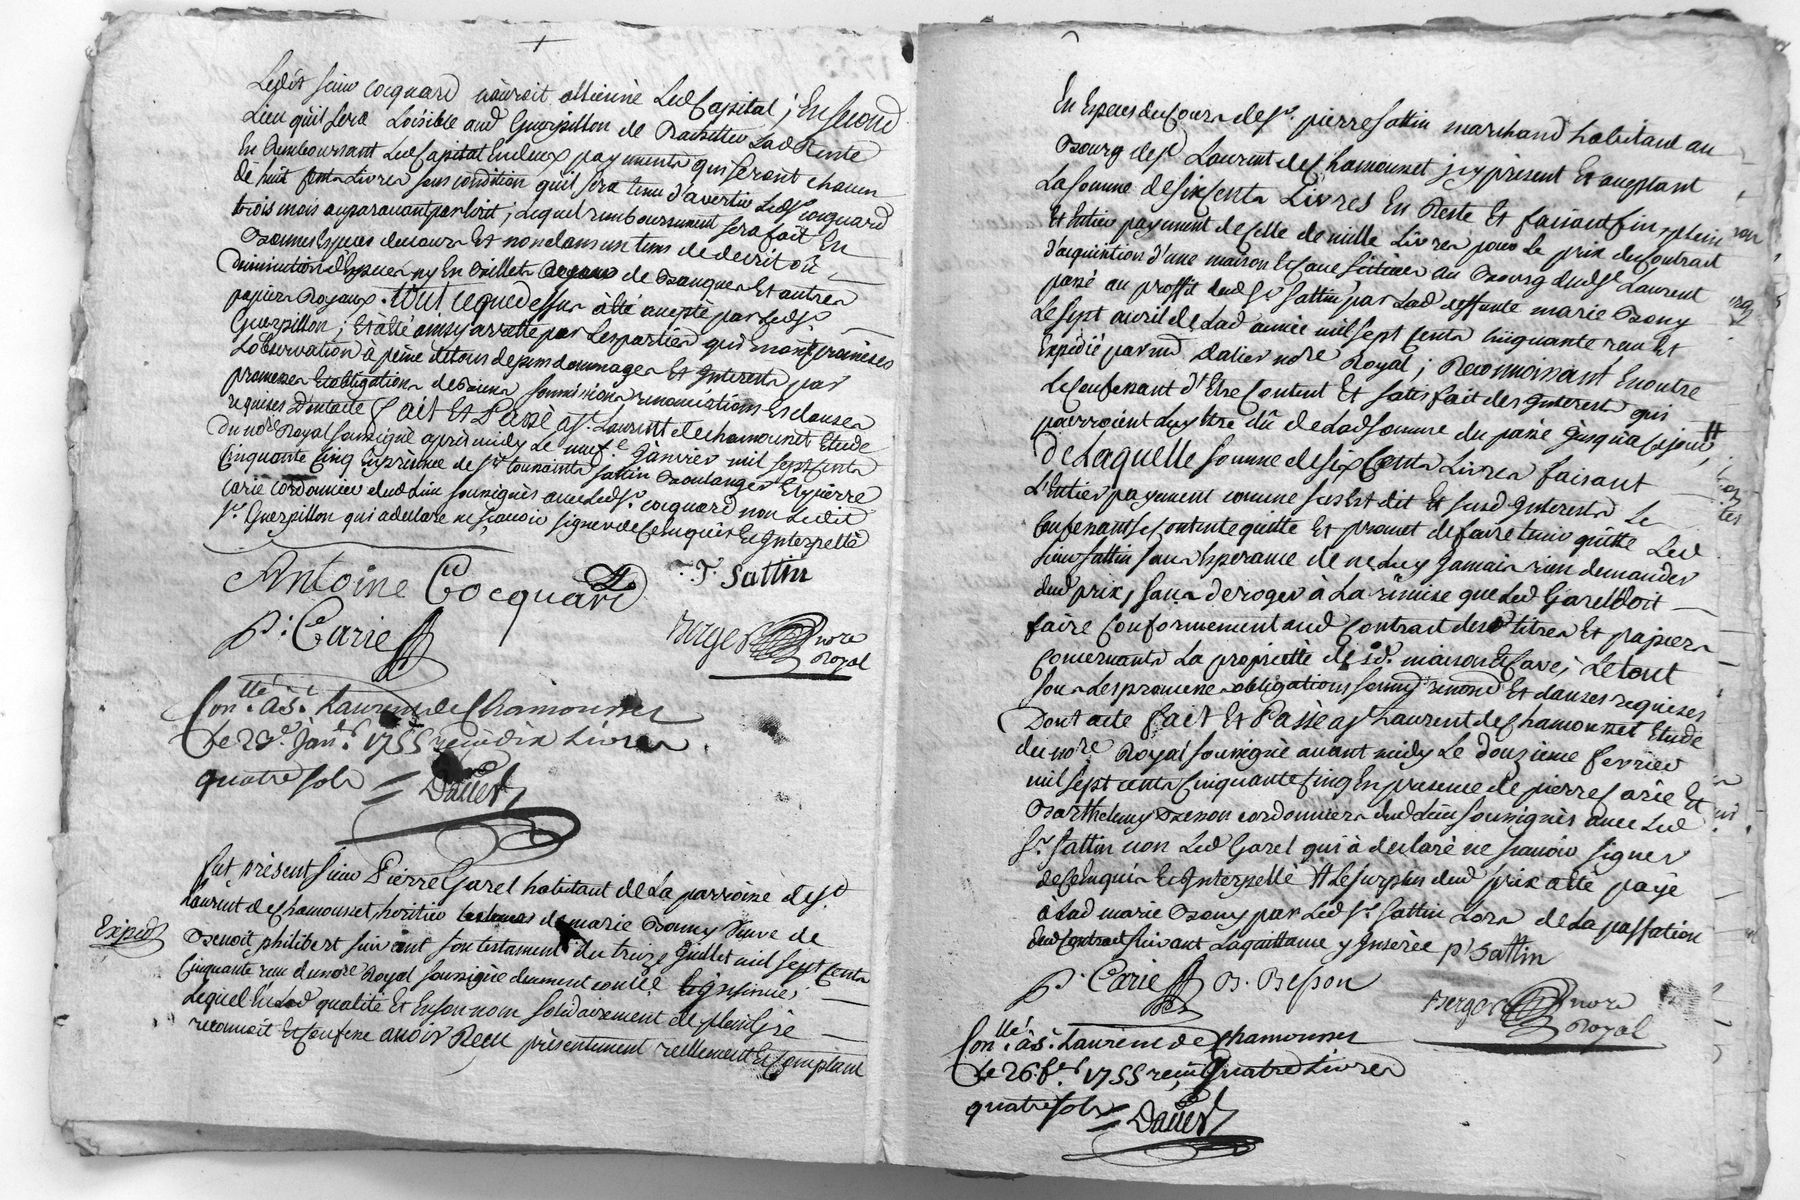 Ledit sieur Cocquard n'auroit alliéné Led Capital; En second
Lieu quil sera Loisible aud Guerpillon de Rachetter Lad Rente
En Remboursant Led Capital En deux payements qui seront chacun
de huit Cents Livres sous condition quil sera tenu d'avertir Led sr cocquard
trois mois auparavant par Ecrit; Lequel remboursement sera fait En
Bonnes Especes de cours Et non dans un tems de decrit où
Diminution d'Especes ny En Billets de Banques Et autres
papiers Royaux. tout ce que dessus à été accepté par Led sr
Guerpillon; Et à été ainsy arretté par Les parties qui En ont promises
L'observation à peine de tous depens dommages Et Interests par
promesses Et obligations de Biens soumissions renonciations Et clauses
requises Dont acte fait Et Passé a st Laurent de chamousset Etude
Du nore Royal soussigné apres midy Le neufe Janvier mil sept cents
Cinquante Cinq En presence de sr toussaints sattin Boulanger Et pierre
Carie cordonnier dud Lieu soussignés avec Led sr cocquard non Ledit
sr Guerpillon qui a declaré ne sçavoir signer de ce enquis Et Interpellé
Antoine Cocquard T. Sattin
p. Carie Berger nore
Royal
Conllé à st Laurent de Chamousset
Le 20e Janr 1755 reçu dix Livres
quatre sols Dauer
Fut present sieur Pierre Garel habitant de La parroisse de st
Laurent de Chamousset heritier de marie Bony veuve de
Expedé
Benoit philibert suivant son testament du treize Juillet mil sept cents
Cinquante reçu du nore Royal soussigné duement conllé Et Insinué;
Lequel En Lad qualité Et En son nom solidairement de plein gré
reconnoit Et Confesse avoir Reçu présentement reellement Et Comptant
En Especes du Cours de sr pierre sattin marchand habitant au
Bourg de st Laurent de Chamousset icy present Et acceptant
La somme de six cents Livres En Reste Et faisant fin plein
Et Entier payement de Celle de mille Livres pour Le prix du Contrat
d'acquisition d'une maison Et Cave scituées au Bourg dud st Laurent
passé au proffit dud sr sattin par Lad deffunte marie Bony
Le sept avril de Lad année mil sept cents Cinquante reçu Et
Expedié par me Dalier nore Royal; Reconnoissant En outre
Le Confessant d'Etre Content Et satisfait des Interests qui
pourroient Luy Etre dû de Lad somme du passé Jusqua ce jour, #
De Laquelle somme de six Cents Livres faisant
L'Entier payement comme sus Est dit Et susd Interests Le
Confessant se contente quitte Et promet de faire tenir quitte Led
sieur sattin sans Esperance de ne Luy Jamais rien demander
dud prix, sans deroger à La remise que Led Garel doit
faire Conformement aud Contrat des titres Et papiers
Concernants La proprieté de sd. maison Et Cave; Le tout
sous Les promesse obligations soumn renond Et clauses requises
Dont acte fait Et Passé a st Laurent de Chamousset Etude
du nore Royal soussigné avant midy Le douzieme fevrier
mil sept cents Cinquante Cinq En presence de pierre Carie Et
Barthelemy Besson cordonniers dud Lieu soussignés avec Led
sr sattin non Led Garel qui à declaré ne sçavoir signer
de ce enquis Et Interpellé # Le surplus dud prix a été payé
à Lad marie Bony par Led sr sattin Lors de La passation
dud Contrat suivant La quittance y Inserée p. Sattin
p. Carie B. Besson
Berger nore
Royal
Conllé à st Laurent de Chamousset
Le 26 fer 1755 reçu Quatre Livres
quatre sols Dauer